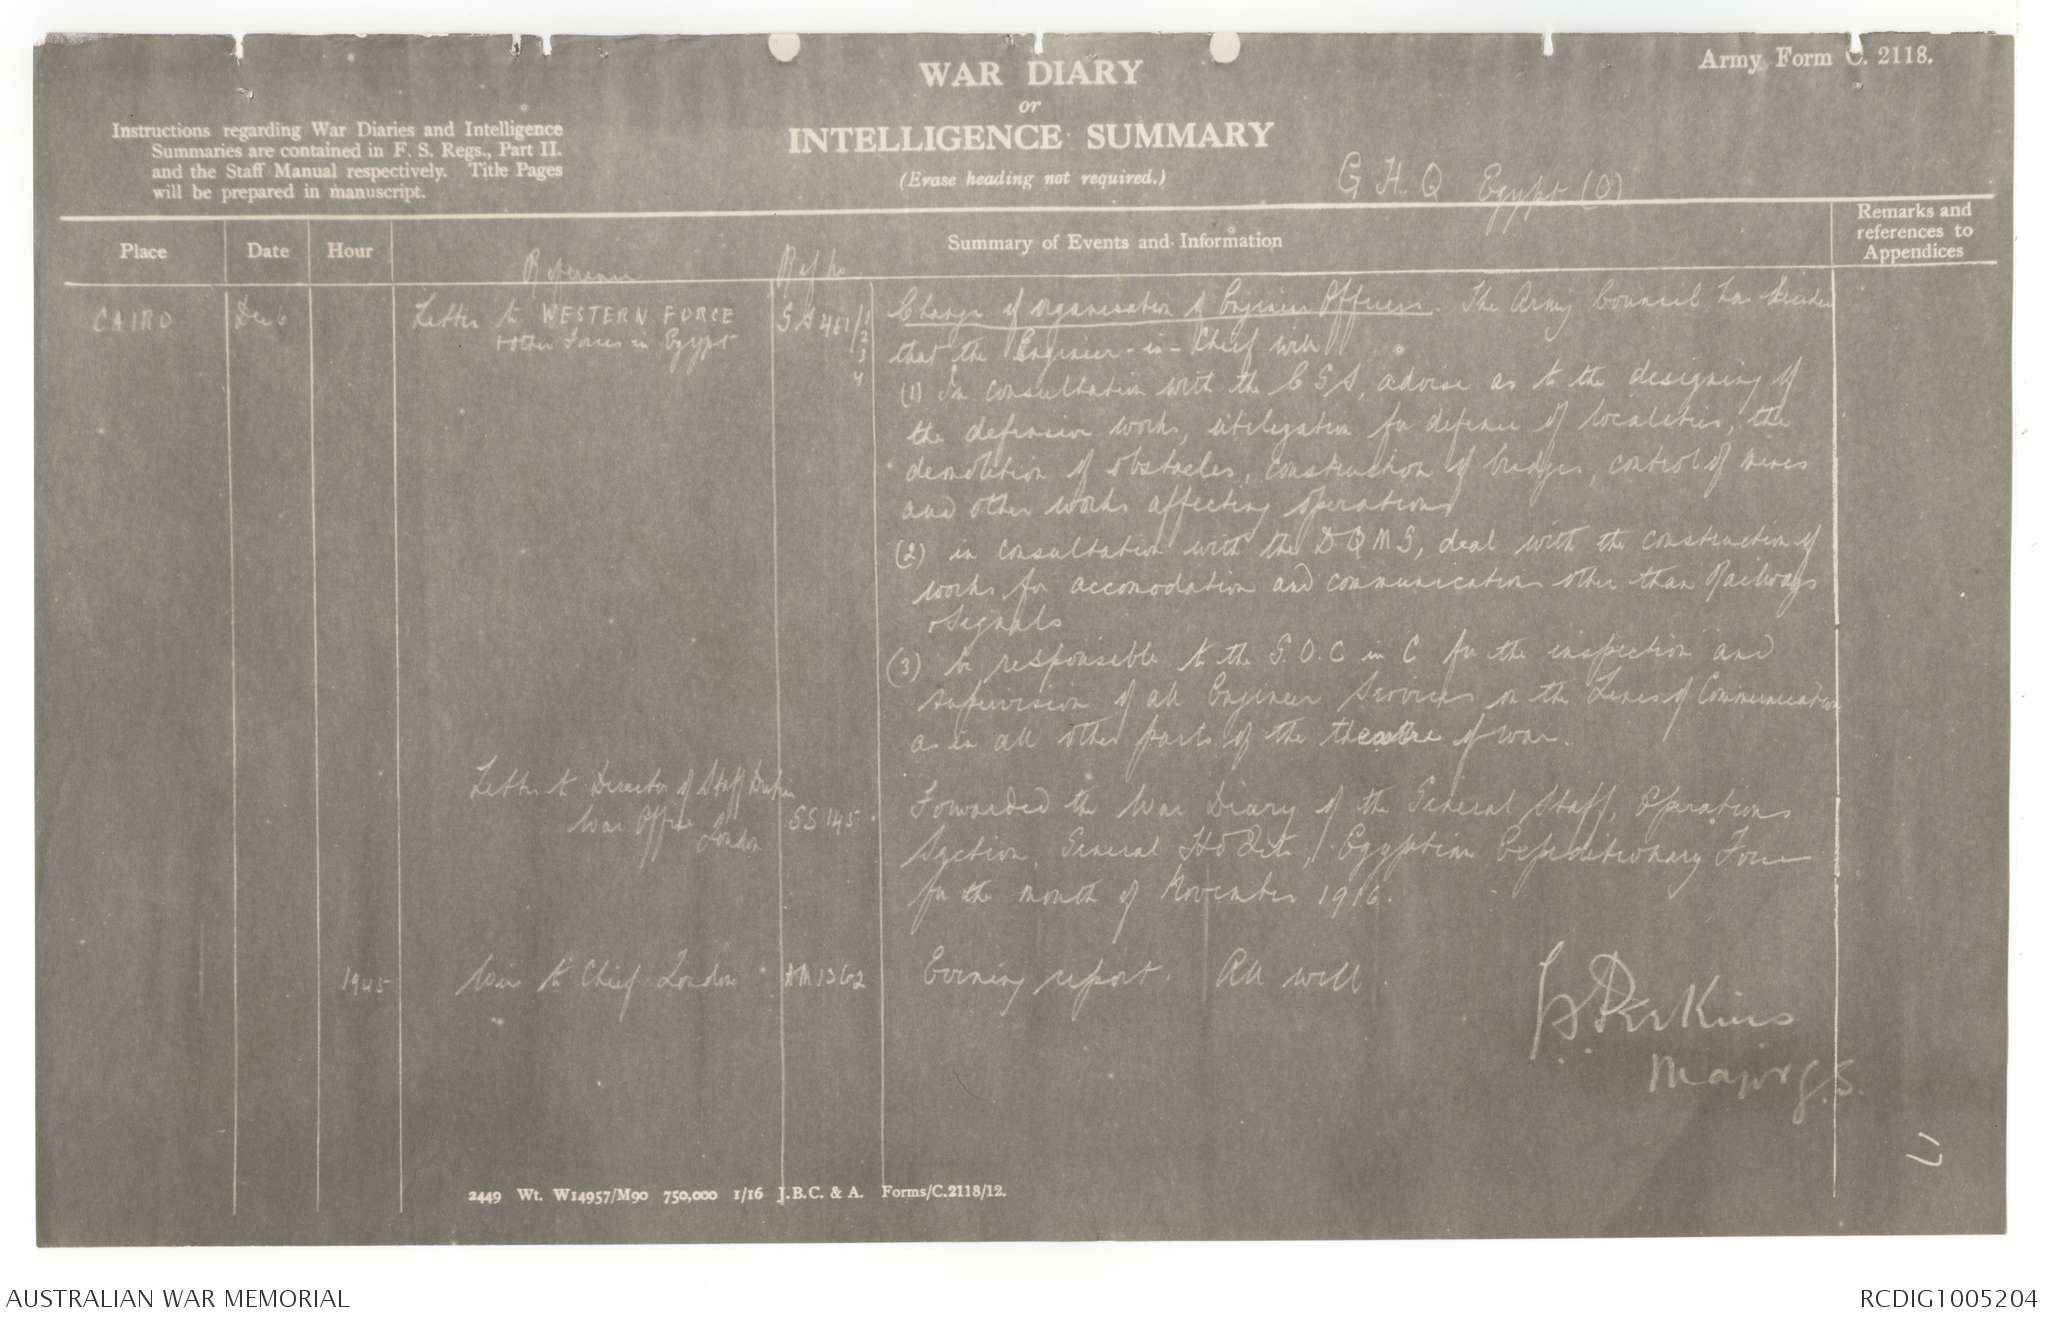 Army Form C. 2118.
WAR DIARY
or
INTELLIGENCE SUMMARY
(Erase heading not required.)
Instructions regarding War Diaries and Intelligence
Summaries are contained in F. S. Regs., Part II.
and the Staff Manual respectively. Title Pages
will be prepared in manuscript.
G H. Q Egypt (O)
Place
Date
Hour
Summary of Events and Information
Remarks and
references to
Appendices
Reference
Ref No
CAIRO
Dec 6
Letter to WESTERN FORCE
+ other Forces in Egypt
GS 461/1
2
3
4
Change of organisation of Engineer Officers. The Army Council has decided
that the Engineer-in-Chief will
(1) In consultation with the C G S, advise as to the designing of
the defensive works, utilization for defence of localities, the
demolition of obstacles, construction of bridges, control of mines
and other works affecting operations
(2) in consultation with the DQMG, deal with the construction of
works for accomodation and communications other than Railways
+ Signals
(3) be responsible to the G.O.C in C for the inspection and
supervision of all Engineer Services on the Lines of Communication
as in all other parts of the theatre of war.
Letter to Director of Staff Duties
War Office
London
SS 145
Forwarded the War Diary of the General Staff, Operations
Section, General Hd Qrs, Egyptian Expeditionary Force
for the month of November 1916.
1945
Wire to Chief London
AM 1362
Evening report. All well.
Perkins
Major G.S.
7
2449 Wt. W14957/M90 750,000 1/16 J.B.C. & A. Forms/C.2118/12.
AUSTRALIAN WAR MEMORIAL
RCDIG1005204